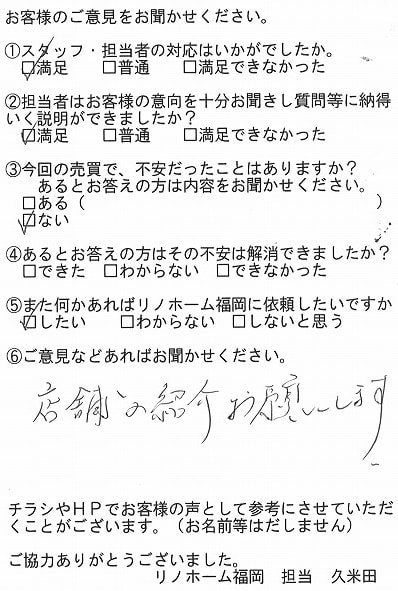 お客様のご意見をお聞かせください。
①スタッフ・担当者の対応はいかがでしたか。
☑満足　□普通　□満足できなかった
②担当者はお客様の意向を十分お聞きし質問等に納得
いく説明ができましたか？
☑満足　□普通　□満足できなかった
③今回の売買で、不安だったことはありますか？
あるとお答えの方は内容をお聞かせください。
□ある（　　　）
☑ない
④あるとお答えの方はその不安は解消できましたか？
□できた　□わからない　□できなかった
⑤また何かあればリノホーム福岡に依頼したいですか
☑したい　□わからない　□しないと思う
⑥ご意見などあればお聞かせください。
店舗の紹介お願いします
チラシやＨＰでお客様の声として参考にさせていただ
くことがございます。（お名前等はだしません）
ご協力ありがとうございました。
リノホーム福岡　担当　久米田